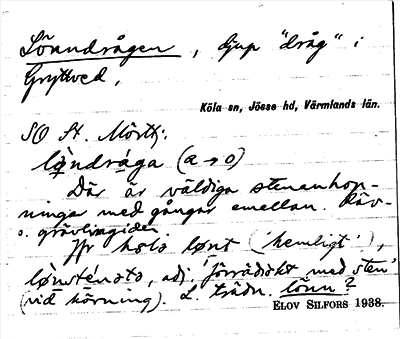 Lönndrågen, djup "dråg" i
Gryttved.
Köla sn, Jösse hd, Värmlands län.
SO St. Mörttj.
lø̀ndråga (a → o)
Där är väldiga stenanhop-
ningar med gångar emellan. Räv-
o. grävlingiden.
Jfr hols lønt ('hemligt'),
adj. 'förrädiskt med sten'
(vid körning). L. trädn. lönn?
ELOV SILFORS 1938.